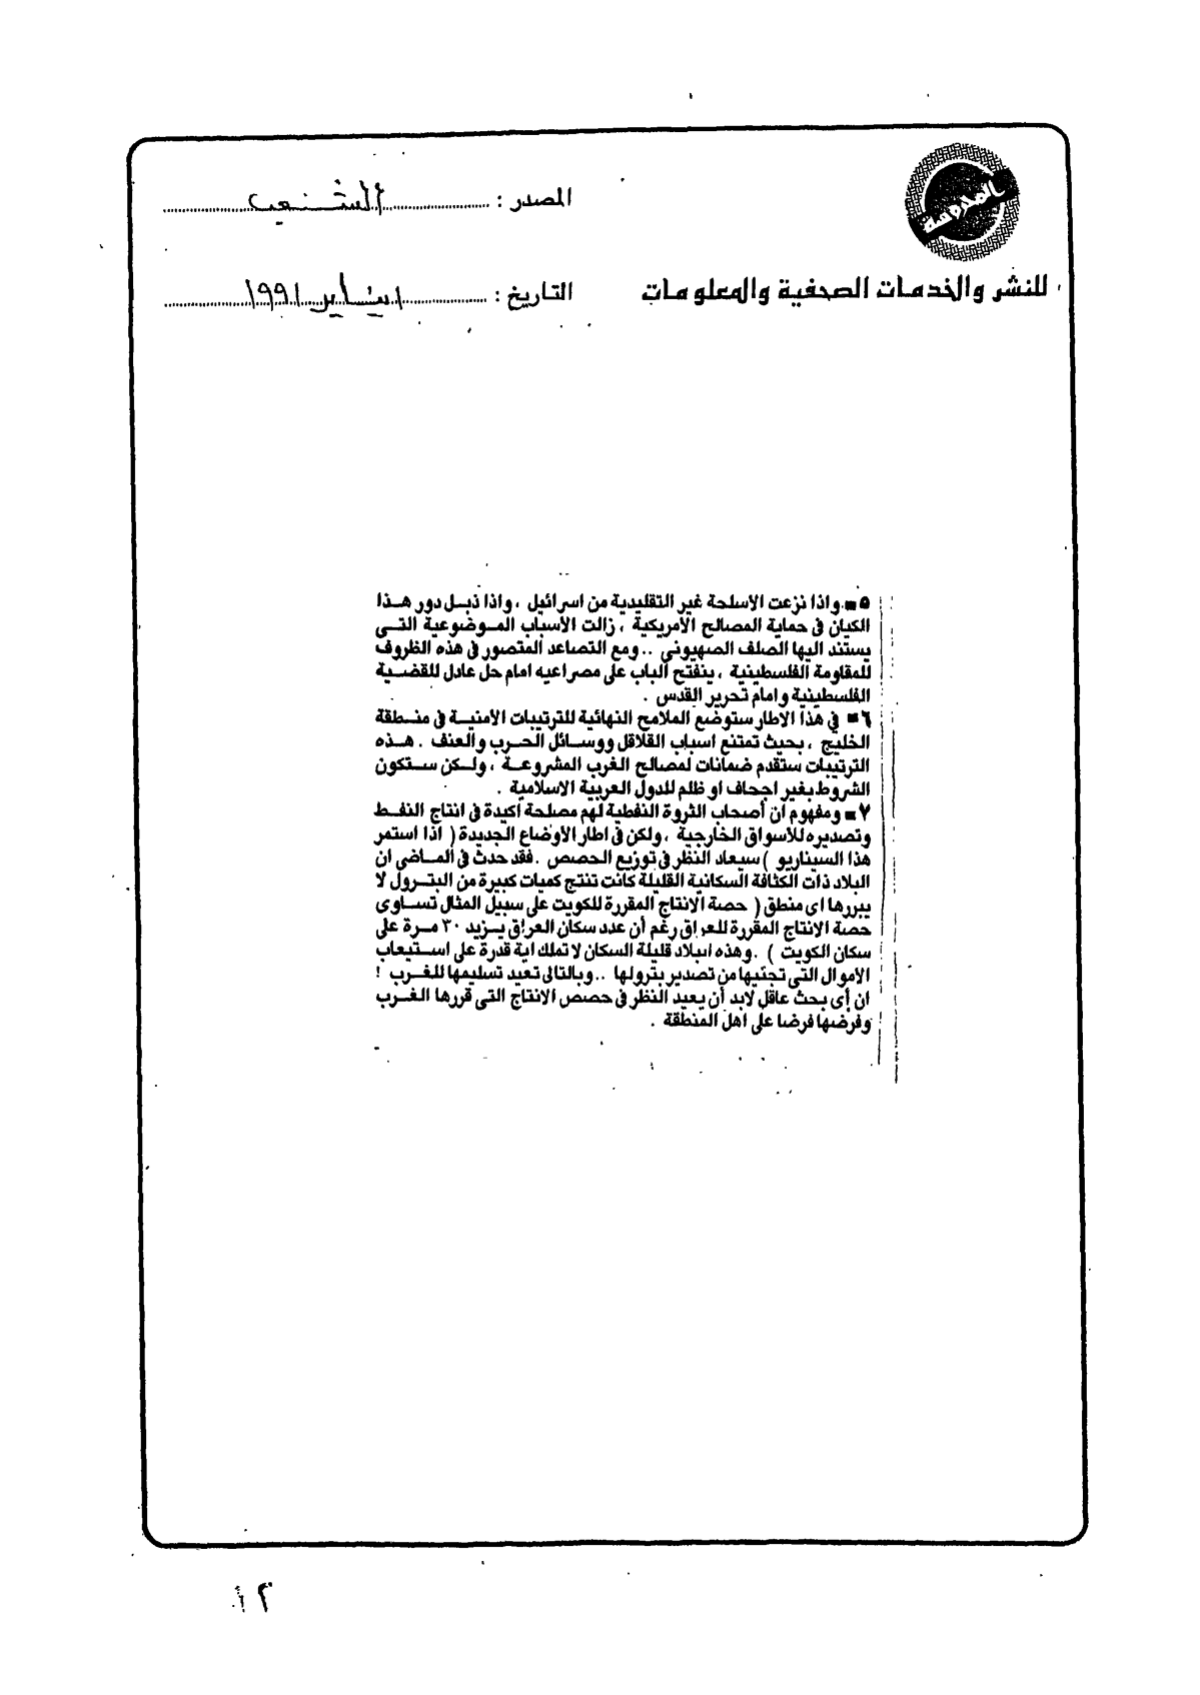 المصدر : الشعب
للنشر والخدمات الصحفية والمعلومات
التاريخ : ١ يناير ١٩٩١
٥ - واذا نزعت الاسلحة غير التقليدية من اسرائيل ، واذا ذبل دور هذا
الكيان فى حماية المصالح الأمريكية ، زالت الأسباب الموضوعية التى
يستند اليها الصلف الصهيونى .. ومع التصاعد المتصور فى هذه الظروف
للمقاومة الفلسطينية ، ينفتح الباب على مصراعيه امام حل عادل للقضية
الفلسطينية وامام تحرير القدس .
٦ - فى هذا الاطار ستوضع الملامح النهائية للترتيبات الأمنية فى منطقة
الخليج ، بحيث تمتنع اسباب القلاقل ووسائل الحرب والعنف . هذه
الترتيبات ستقدم ضمانات لمصالح الغرب المشروعة ، ولكن ستكون
الشروط بغير اجحاف او ظلم للدول العربية الاسلامية .
٧ - ومفهوم ان أصحاب الثروة النفطية لهم مصلحة أكيدة فى انتاج النفط
وتصديره للأسواق الخارجية ، ولكن فى اطار الأوضاع الجديدة ( اذا استمر
هذا السيناريو ) سيعاد النظر فى توزيع الحصص . فقد حدث فى الماضى ان
البلاد ذات الكثافة السكانية القليلة كانت تنتج كميات كبيرة من البترول لا
يبررها اى منطق ( حصة الانتاج المقررة للكويت على سبيل المثال تساوى
حصة الانتاج المقررة للعراق رغم أن عدد سكان العراق يزيد ٣٠ مرة على
سكان الكويت ) . وهذه البلاد قليلة السكان لا تملك اية قدرة على استيعاب
الأموال التى تجنيها من تصدير بترولها .. وبالتالى تعيد تسليمها للغرب !
ان أى بحث عاقل لابد أن يعيد النظر فى حصص الانتاج التى قررها الغرب
وفرضها فرضا على اهل المنطقة .